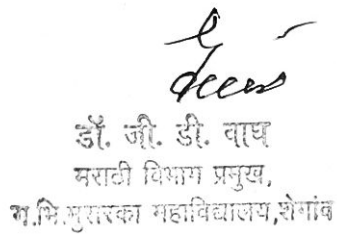 डॉ. जी. डी. वाघ
मराठी विभाग प्रमुख,
म.भि.मुरारका महाविद्यालय,शेगांव